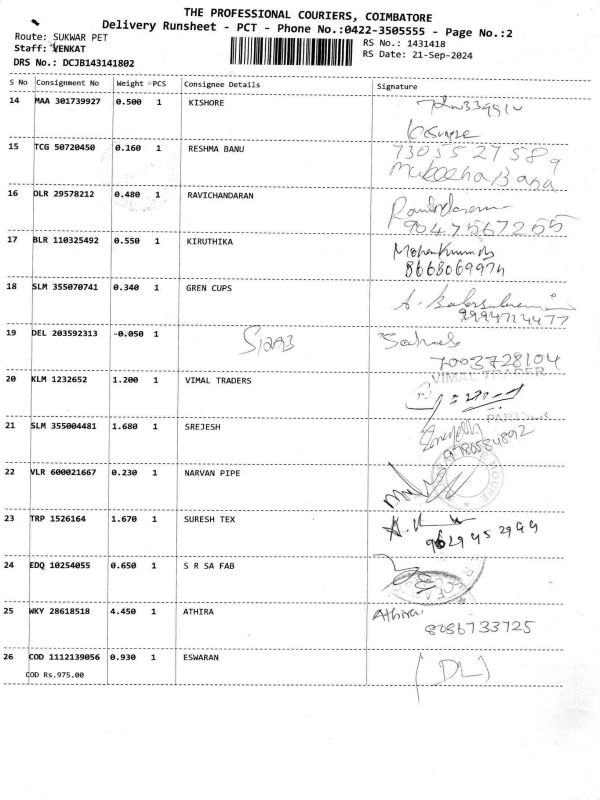 THE PROFESSIONAL COURIERS, COIMBATORE
Delivery Runsheet - PCT - Phone No.:0422-3505555 - Page No.:2
Route: SUKWAR PET
RS No.: 1431418
Staff: VENKAT
RS Date: 21-Sep-2024
DRS No.: DCJB143141802
S No Consignment No Weight PCS Consignee Details Signature
14 MAA 301739927 0.500 1 KISHORE
15 TCG 50720450 0.160 1 RESHMA BANU
7305527589
16 DLR 29578212 0.480 1 RAVICHANDARAN
9047567255
17 BLR 110325492 0.550 1 KIRUTHIKA
8668069974
18 SLM 355070741 0.340 1 GREN CUPS
9994714477
19 DEL 203592313 -0.050 1
7003728104
20 KLM 1232652 1.200 1 VIMAL TRADERS
VIMAL TRADER
21 SLM 355004481 1.680 1 SREJESH
9786584892
22 VLR 600021667 0.230 1 NARVAN PIPE
23 TRP 1526164 1.670 1 SURESH TEX
9629452949
24 EDQ 10254055 0.650 1 S R SA FAB
25 WKY 28618518 4.450 1 ATHIRA Athira
8086733725
26 COD 1112139056 0.930 1 ESWARAN (DL)
COD Rs.975.00